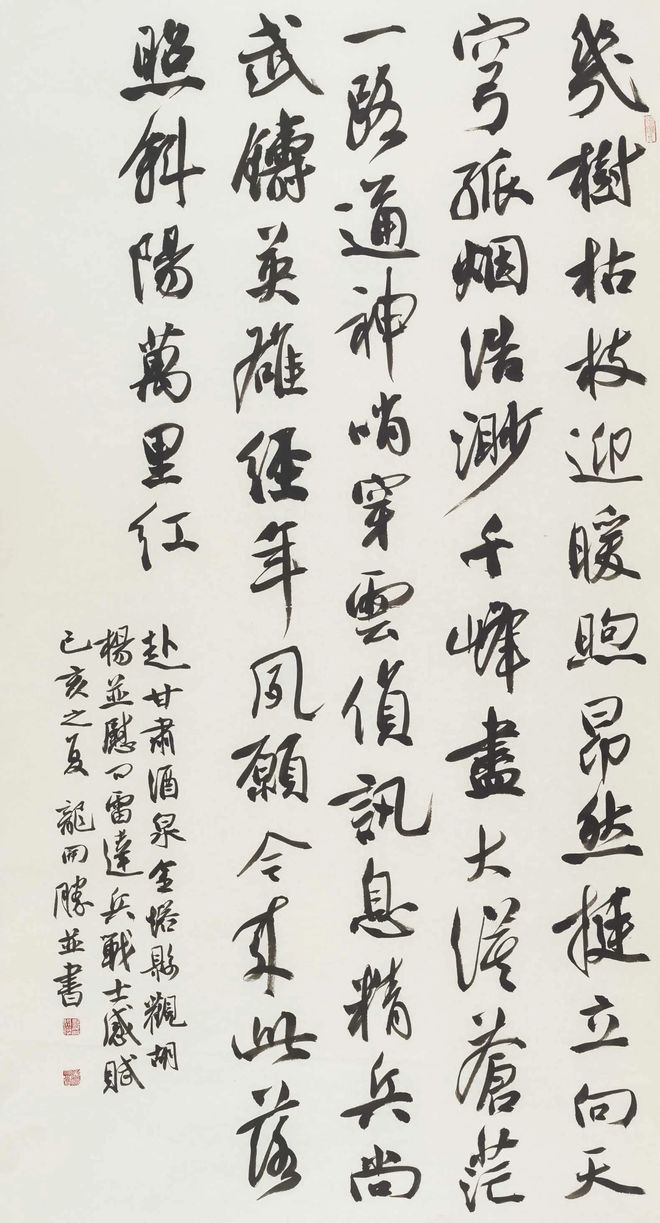 幾樹枯枝迎暖煦昂然挺立向天
穹孤烟浩渺千峰盡大漠蒼茫
一路通神哨穿雲偵訊息精兵尚
武鑄英雄經年夙願今来此落
照斜陽萬里红
赴甘肅酒泉金塔縣觀胡
楊並慰问雷達兵戰士感賦
己亥之夏 龍開勝並書